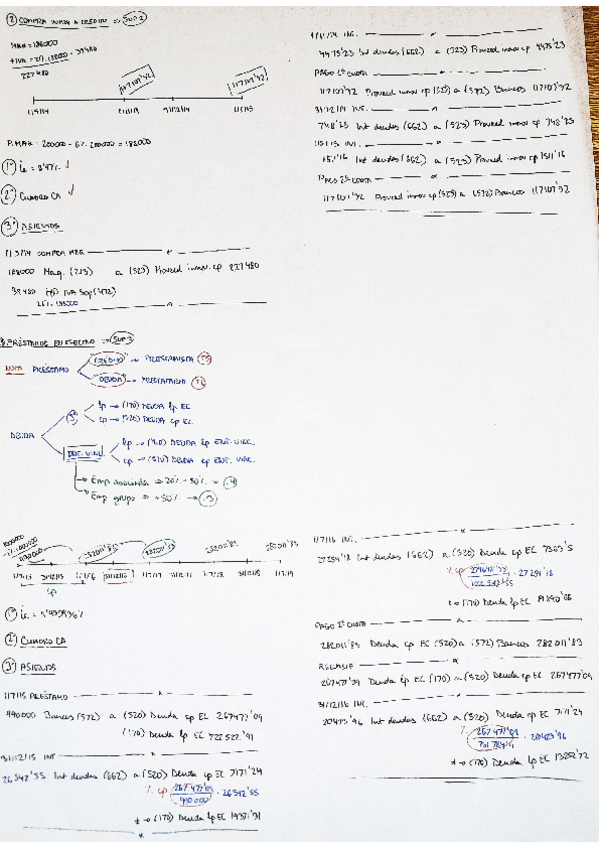 ② COMPRA INMOV A CREDITO => SUP 2
MAQ = 188000
+ IVA = 21% · 188000 = 39480
227480
117107'92
117107'92
1/3/14
31/12/14
P. MAQ = 200000 - 6% · 200000 = 188000
① ie =
② CUADRO CA
③ ASIENTOS
1/3/14 COMPRA MAQ
188000 Maq. (213) a (523) Proveed inmov. cp 227480
39480 HP IVA Sop (472)
21% · 188000
PRÉSTAMOS EN EFECTIVO => SUP 3
NOTA PRÉSTAMO
"CRÉDITO" → PRESTAMISTA
"DEUDA" → PRESTATARIO
DEUDA
lp → (170) DEUDA lp EC
cp → (520) DEUDA cp EC.
ENT. VINC.
lp → DEUDA lp ENT. VINC.
cp → (510) DEUDA cp ENT. VINC.
Emp asociada => 20% - 50% → .4
Emp grupo => +50% → .3
1000000
990000
282011'83
282011'83
282011'83
282011'83
1/7/15
31/12/15
1/7/16
31/12/16
1/7/17
31/12/17
1/7/18
31/12/18
1/7/19
cp
① ie =
② CUADRO CA
③ ASIENTOS
1/7/15 PRÉSTAMO
990000 Bancos (572) a (520) Deuda cp EC 267477'09
(170) Deuda lp EC 722522'91
31/12/15 INT.
26542'55 Int deudas (662) a (520) Deuda cp EC 7171'24
% cp 267477'09 / 990000 · 26542'55
* → (170) Deuda lp EC 19371'31
INT.
4475'23 Int deudas (662) a (523) Proveed inmov cp 4475'23
PAGO 1ª CUOTA
117107'92 Proveed inmov cp (523) a (572) Bancos 117107'92
31/12/14 INT.
Int deudas (662) a (523) Proveed inmov cp
INT.
Int deudas (662) a (523) Proveed inmov cp 1511'16
PAGO 2ª CUOTA
117107'92 Proveed inmov cp (523) a (572) Bancos 117107'92
1/7/16 INT.
27254'18 Int deudas (662) a (520) Deuda cp EC
% cp · 27254'18
* → (170) Deuda lp EC
PAGO 1ª CUOTA
282011'83 Deuda cp EC (520) a (572) Bancos 282011'83
RECLASIF
267477'09 Deuda lp EC (170) a (520) Deuda cp EC 267477'09
31/12/16 INT.
20423'96 Int deudas (662) a (520) Deuda cp EC 7171'24
% 267477'09 · 20423'96
* → (170) Deuda lp EC 13252'72